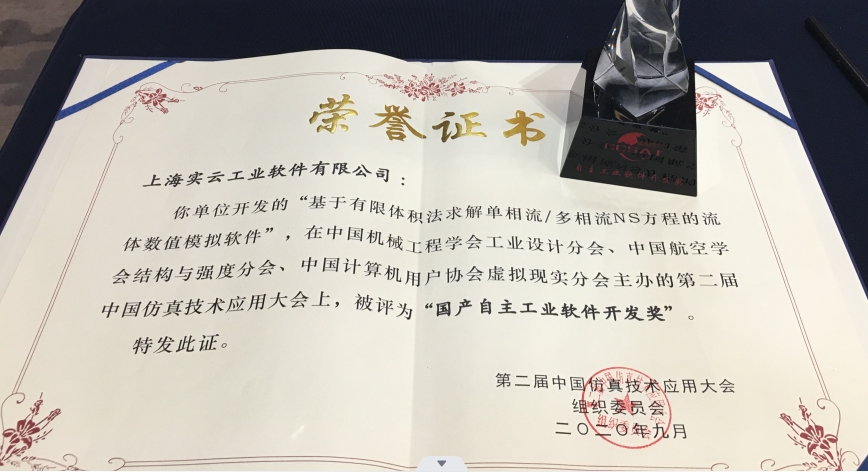 荣誉证书
上海实云工业软件有限公司：
你单位开发的“基于有限体积法求解单相流/多相流NS方程的流
体数值模拟软件”，在中国机械工程学会工业设计分会、中国航空学
会结构与强度分会、中国计算机用户协会虚拟现实分会主办的第二届
中国仿真技术应用大会上，被评为“国产自主工业软件开发奖”。
特发此证。
第二届中国仿真技术应用大会
组织委员会
二〇二〇年九月
组织委员会